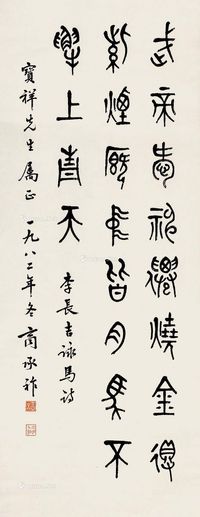 武帝愛神僊燒金得
紫煙廄中皆肉馬不
解上青天
李長吉詠馬詩
寶祥先生屬正 一九八二年冬 商承祚